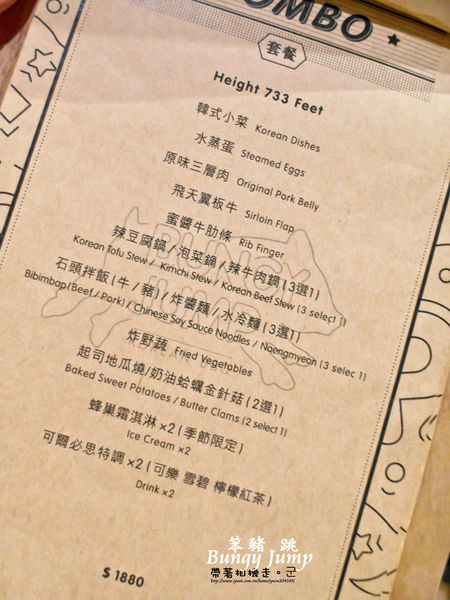 COMBO
套餐
Height 733 Feet
韓式小菜 Korean Dishes
水蒸蛋 Steamed Eggs
原味三層肉 Original Pork Belly
飛天翼板牛 Sirloin Flap
蜜醬牛肋條 Rib Finger
辣豆腐鍋/泡菜鍋/辣牛肉鍋(3選1)
Korean Tofu Stew / Kimchi Stew / Korean Beef Stew (3 select 1)
石頭拌飯(牛/豬)/炸醬麵/水冷麵(3選1)
Bibimbap(Beef / Pork) / Chinese Soy Sauce Noodles / Naengmyeon(3 selec 1)
炸野蔬 Fried Vegetables
起司地瓜燒/奶油蛤蠣金針菇(2選1)
Baked Sweet Potatoes / Butter Clams (2 select 1)
蜂巢霜淇淋 ×2 (季節限定)
Ice Cream ×2
可爾必思特調 ×2 (可樂 雪碧 檸檬紅茶)
Drink ×2
$ 1880
BUNGY
JUMP
笨豬 跳
Bungy Jump
帶著相機走。